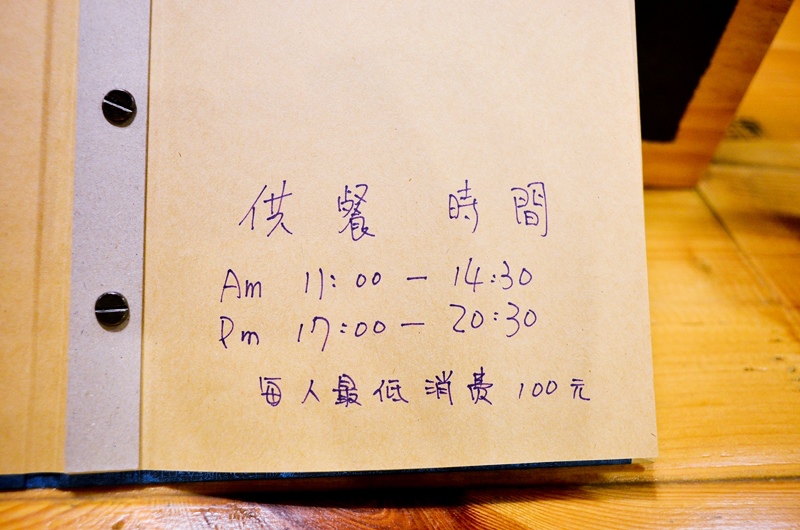 供餐 時間
Am 11:00 - 14:30
Pm 17:00 - 20:30
每人最低消費 100元